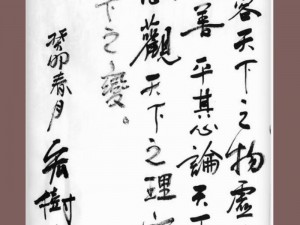 容天下之物虛
善平其心論天下
心觀天下之理
下之變。
癸卯春月 樹